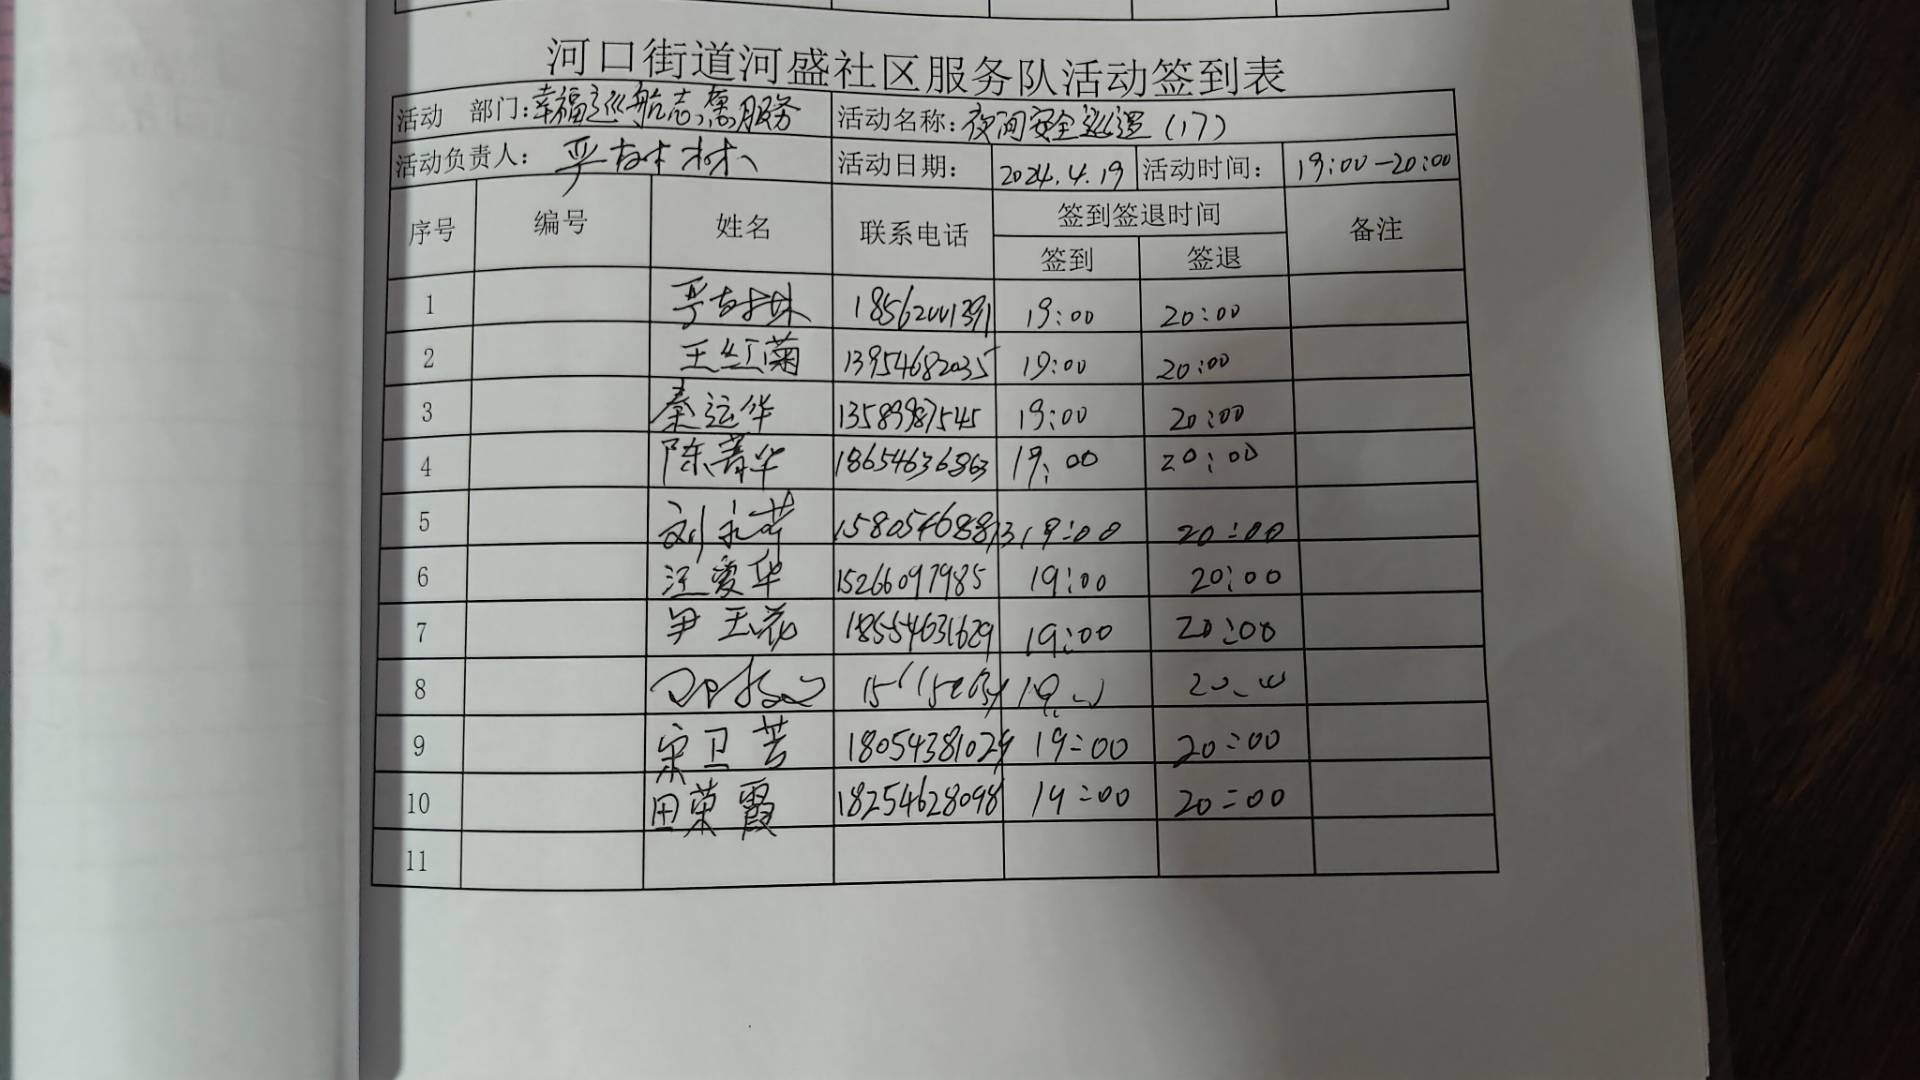 河口街道河盛社区服务队活动签到表
活动 部门：幸福巡航志愿服务 活动名称：夜间安全巡逻（17）
活动负责人：严树林 活动日期： 2024.4.19 活动时间： 19:00-20:00
序号 编号 姓名 联系电话 签到签退时间 备注
签到 签退
1 严树林 18562001391 19:00 20:00
2 王红菊 13954682035 19:00 20:00
3 秦运华 13589987545 19:00 20:00
4 陈菁华 18654636863 19:00 20:00
5 刘永芹 15805468873 19:00 20:00
6 汪爱华 15266097985 19:00 20:00
7 尹玉花 18554631629 19:00 20:00
8
9 宋卫芳 18054381029 19:00 20:00
10 田荣霞 18254628098 19:00 20:00
11